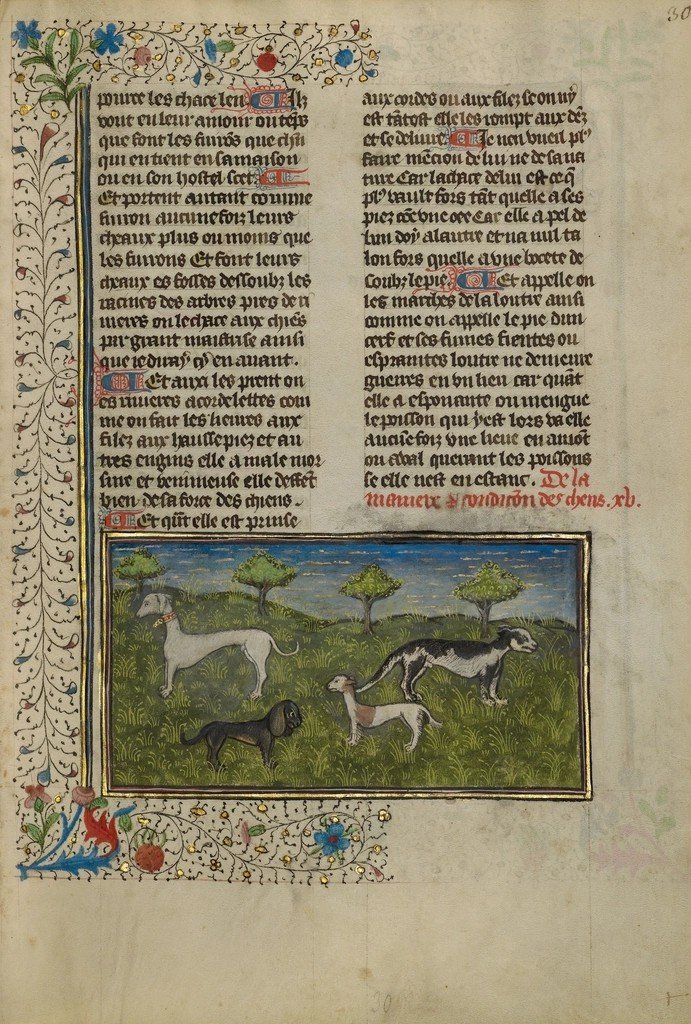 30
pource les chace len Ilz
vont en leur amour ou teps
que font les furons que chun
qui en tient en sa maison
ou en son hostel scet
Et portent autant comme
furon aucunefoiz leurs
cheaux plus ou moins que
les furons Et font leurs
cheaux es fosses dessoubz les
racines des arbres pres de ri
uieres on le chace aux chiens
par grant maistrise ainsi
que ie diray cy en auant.
Et aux les prent on
es riuieres a cordelettes com
me on fait les lieures aux
filez aux haussepiez et au
tres engins elle a male mor
sure et venimeuse elle deffet
bien de sa force des chiens.
Et qunt elle est prinse
aux cordes ou aux filez se on ny
est tatost elle les rompt aux dez
et se deliure Je nen vueil pl9
faire mencion de lui ne de sa na
ture Car la chace de lui est ce q
pl9 vault fors tat quelle a ses
piez coe vne oee Car elle a pel de
lun doy a lautre et na nul ta
lon fors quelle a vne bocete de
soubz le pie. Et appelle on
les marches de la loutre ainsi
comme on appelle le pie dun
cerf et ses fumes fientes ou
espraintes loutre ne demeure
gueires en vn lieu car quat
elle a espouante ou mengue
le poisson qui y est lors va elle
aucunefoiz vne lieue en amot
ou aval querant les poissons
se elle nest en estanc. De la
maniere & condicon des chens. xv.
30